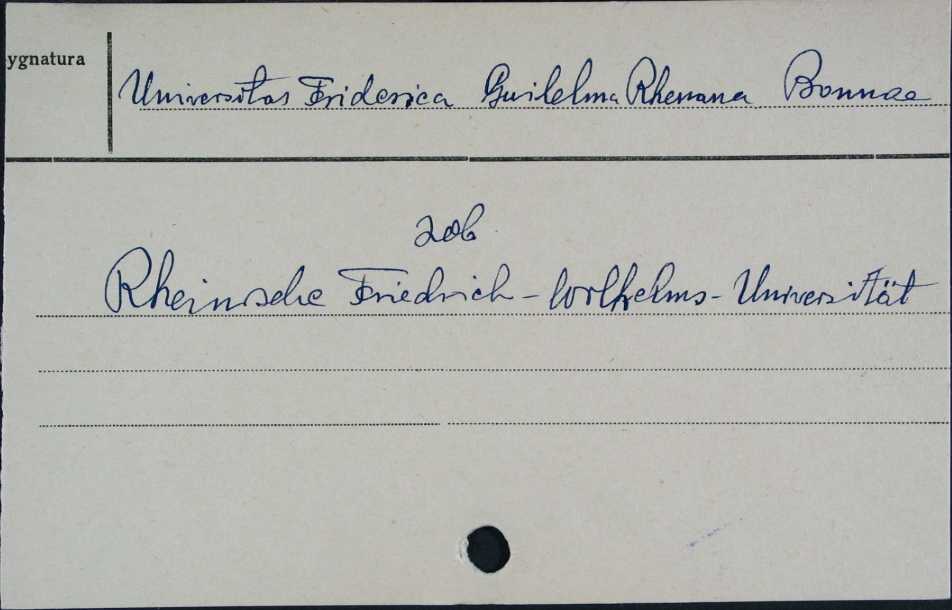 ygnatura
Universitas Friderica Guilelma Rhenana Bonnae
zob
Rheinische Friedrich-Wilhelms-Universität